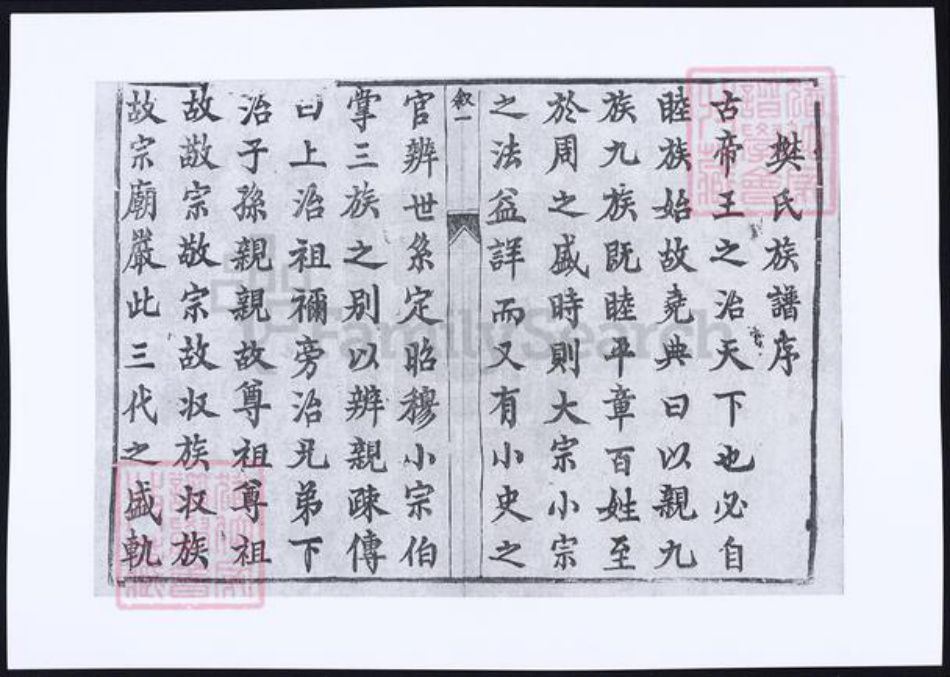 樊氏族譜序
古帝王之治天下也必自
睦族始故堯典曰以親九
族九族既睦平章百姓至
於周之盛時則大宗小宗
之法益詳而又有小史之
敘一
官辨世系定昭穆小宗伯
掌三族之别以辨親疎傳
曰上治祖禰旁治兄弟下
治子孫親親故尊祖尊祖
故敬宗敬宗故収族収族
故宗廟嚴此三代之盛軌
FamilySearch